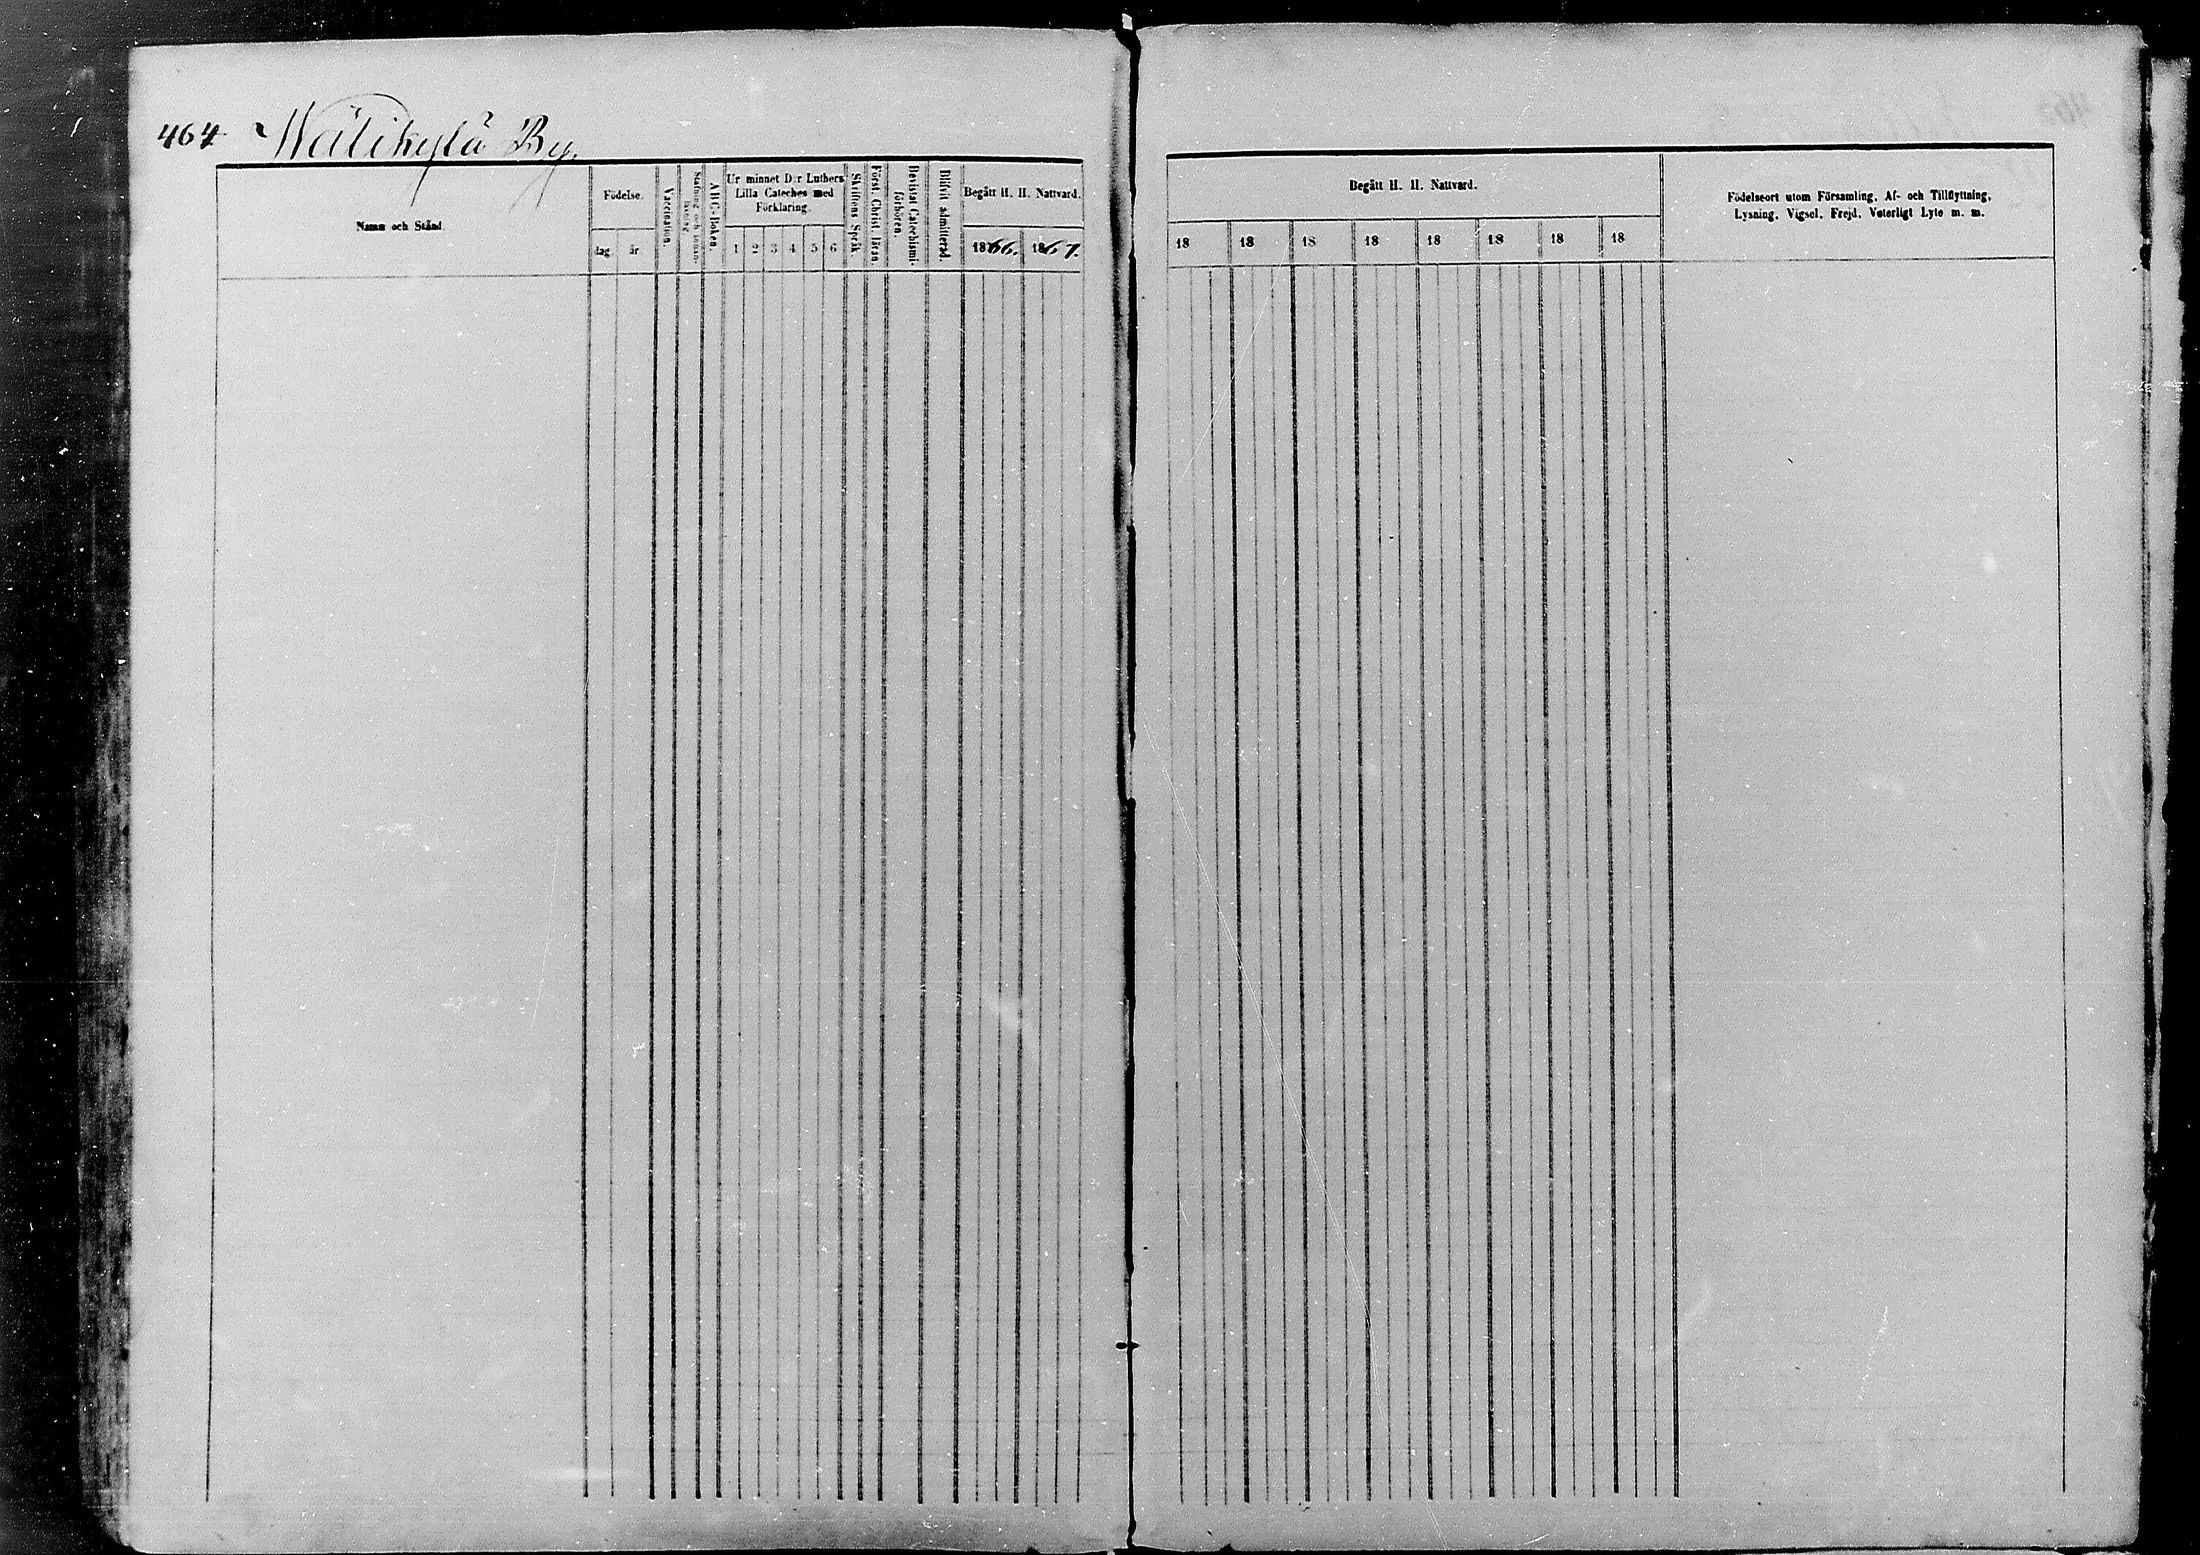 464 Wälikylä By.
Namn och Stånd.
Födelse.
dag år
Vaccination.
ABC-Boken.
Ur minnet D:r Luthers
Lilla Cateches med
Förklaring.
1 2 3 4 5 6
Skriftens Språk.
Först. Christ. läran.
Bevistat Catechismi-
förhören.
Blifvit admitterad.
Begått H. H. Nattvard.
1866. 1867.
Begått H. H. Nattvard.
18 18 18 18 18 18 18 18
Födelseort utom Församling, Af- och Tillflyttning,
Lysning, Vigsel, Frejd, Vaterligt Lyte m. m.